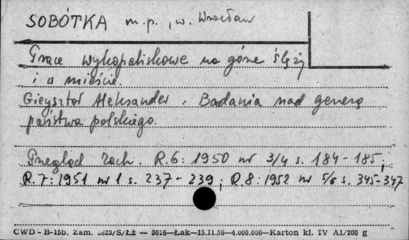 SOBÓTKA m.p., w. Wrocław
Prace wykopaliskowe na górze Ślęży
i o mieście.
Gieysztor Aleksander: Badania nad genezą
państwa polskiego.
Przegląd Zach. R.6: 1950 nr 3/4 s. 184-185,
R.7: 1951 nr 1 s. 237-239; R.8: 1952 nr 5/6 s. 345-347
CWD - B-15b. Zam. 5823/S/Łż — 3016—Łak—15.11.56—4.000.000—Karton kl. IV A1/200 g